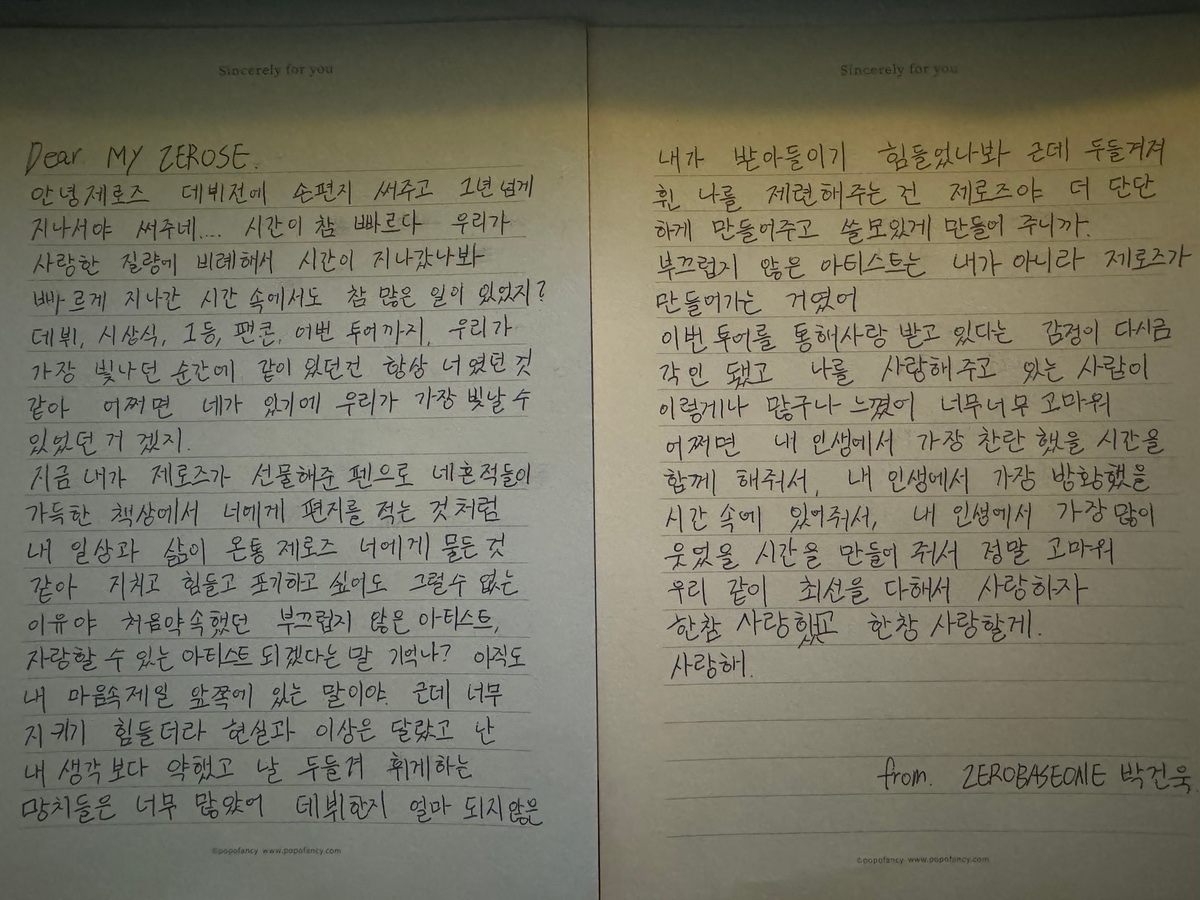 Sincerely for you
Dear MY ZEROSE.
안녕제로즈 데뷔전에 손편지 써주고 1년넘게
지나서야 써주네.... 시간이 참 빠르다 우리가
사랑한 질량에 비례해서 시간이 지나갔나봐
빠르게 지나간 시간 속에서도 참 많은 일이 있었지?
데뷔, 시상식, 1등, 팬콘, 이번 투어까지, 우리가
가장 빛나던 순간에 같이 있던건 항상 너였던 것
같아 어쩌면 네가 있기에 우리가 가장 빛날 수
있었던 거 겠지.
지금 내가 제로즈가 선물해준 펜으로 네흔적들이
가득한 책상에서 너에게 편지를 적는 것처럼
내 일상과 삶이 온통 제로즈 너에게 물든 것
같아 지치고 힘들고 포기하고 싶어도 그럴수 없는
이유야 처음약속했던 부끄럽지 않은 아티스트,
자랑할 수 있는 아티스트 되겠다는 말 기억나? 아직도
내 마음속 제일 앞쪽에 있는 말이야. 근데 너무
지키기 힘들더라 현실과 이상은 달랐고 난
내 생각보다 약했고 날 두들겨 휘게하는
망치들은 너무 많았어 데뷔한지 얼마 되지않은
©popofancy www.popofancy.com
Sincerely for you
내가 받아들이기 힘들었나봐 근데 두들겨져
휜 나를 제련해주는 건 제로즈야 더 단단
하게 만들어주고 쓸모있게 만들어 주니까.
부끄럽지 않은 아티스트는 내가 아니라 제로즈가
만들어가는 거였어
이번 투어를 통해사랑 받고 있다는 감정이 다시금
각인 됐고 나를 사랑해주고 있는 사람이
이렇게나 많구나 느꼈어 너무너무 고마워
어쩌면 내 인생에서 가장 찬란 했을 시간을
함께 해줘서, 내 인생에서 가장 방황했을
시간 속에 있어줘서, 내 인생에서 가장 많이
웃었을 시간을 만들어 줘서 정말 고마워
우리 같이 최선을 다해서 사랑하자
한참 사랑했고 한창 사랑할게.
사랑해.
from. ZEROBASEONE 박건욱
©popofancy www.popofancy.com